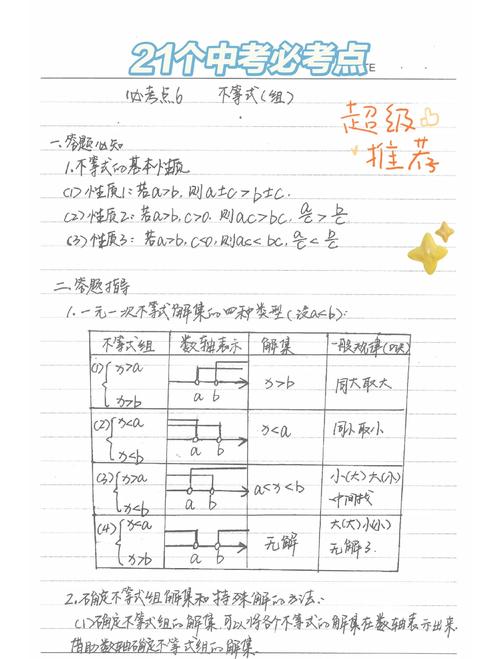 21个中考必考点
必考点6 不等式(组)
超级
推荐
一.答题必知
1.不等式的基本性质
(1)性质1:若a>b,则a±c>b±c.
(2)性质2:若a>b,c>0,则ac>bc, a/c > b/c
(3)性质3:若a>b,c<0,则ac<bc, a/c < b/c
二.答题指导
1.一元一次不等式解集的四种类型(设a<b):
不等式组 数轴表示 解集 一般规律(口诀)
(1) { x>a
x>b a b x>b 同大取大
(2) { x<a
x<b a b x<a 同小取小
(3) { x>a
x<b a b a<x<b 小(大)大(小)
中间找
(4) { x<a
x>b a b 无解 大(大)小(小)
无解了.
2.确定不等式组解集和特殊解的方法:
(1)确定不等式组的解集,可以将各个不等式的解集在数轴表示出来
借助数轴确定不等式组的解集.